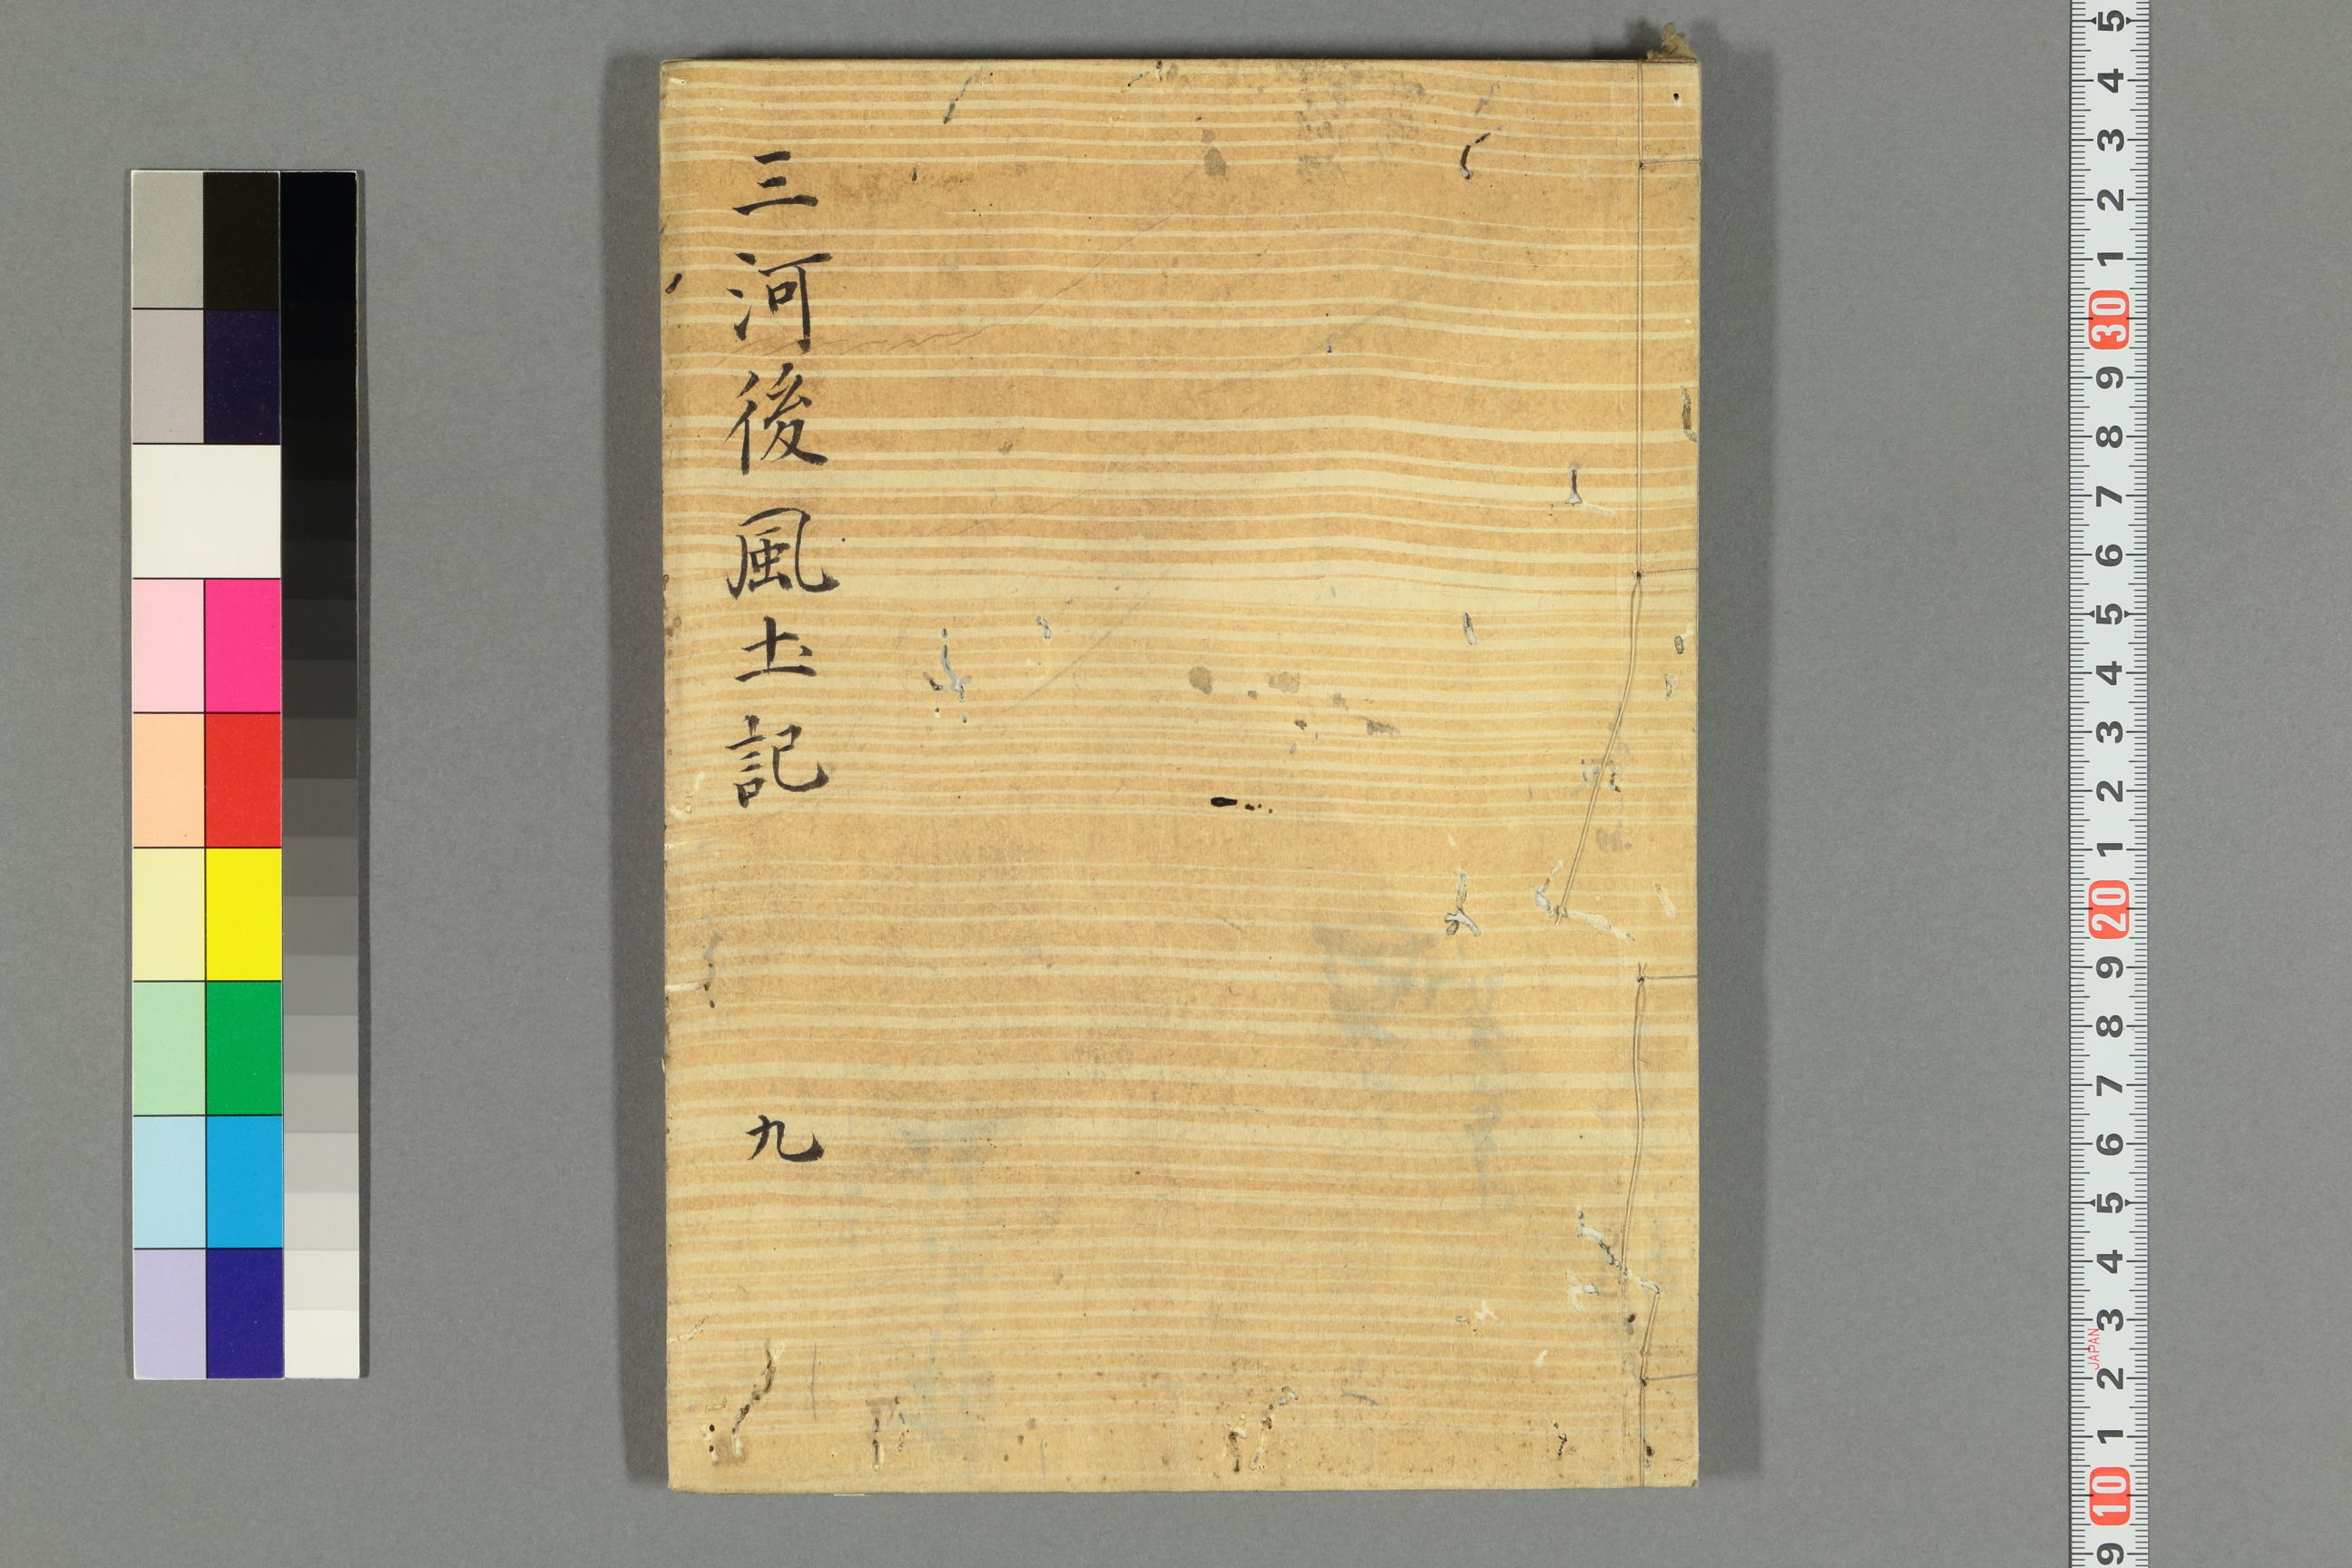 三河後風土記
九
5
4
3
2
1
30
9
8
7
6
5
4
3
2
1
20
9
8
7
6
5
4
3
JAPAN
2
1
10
9